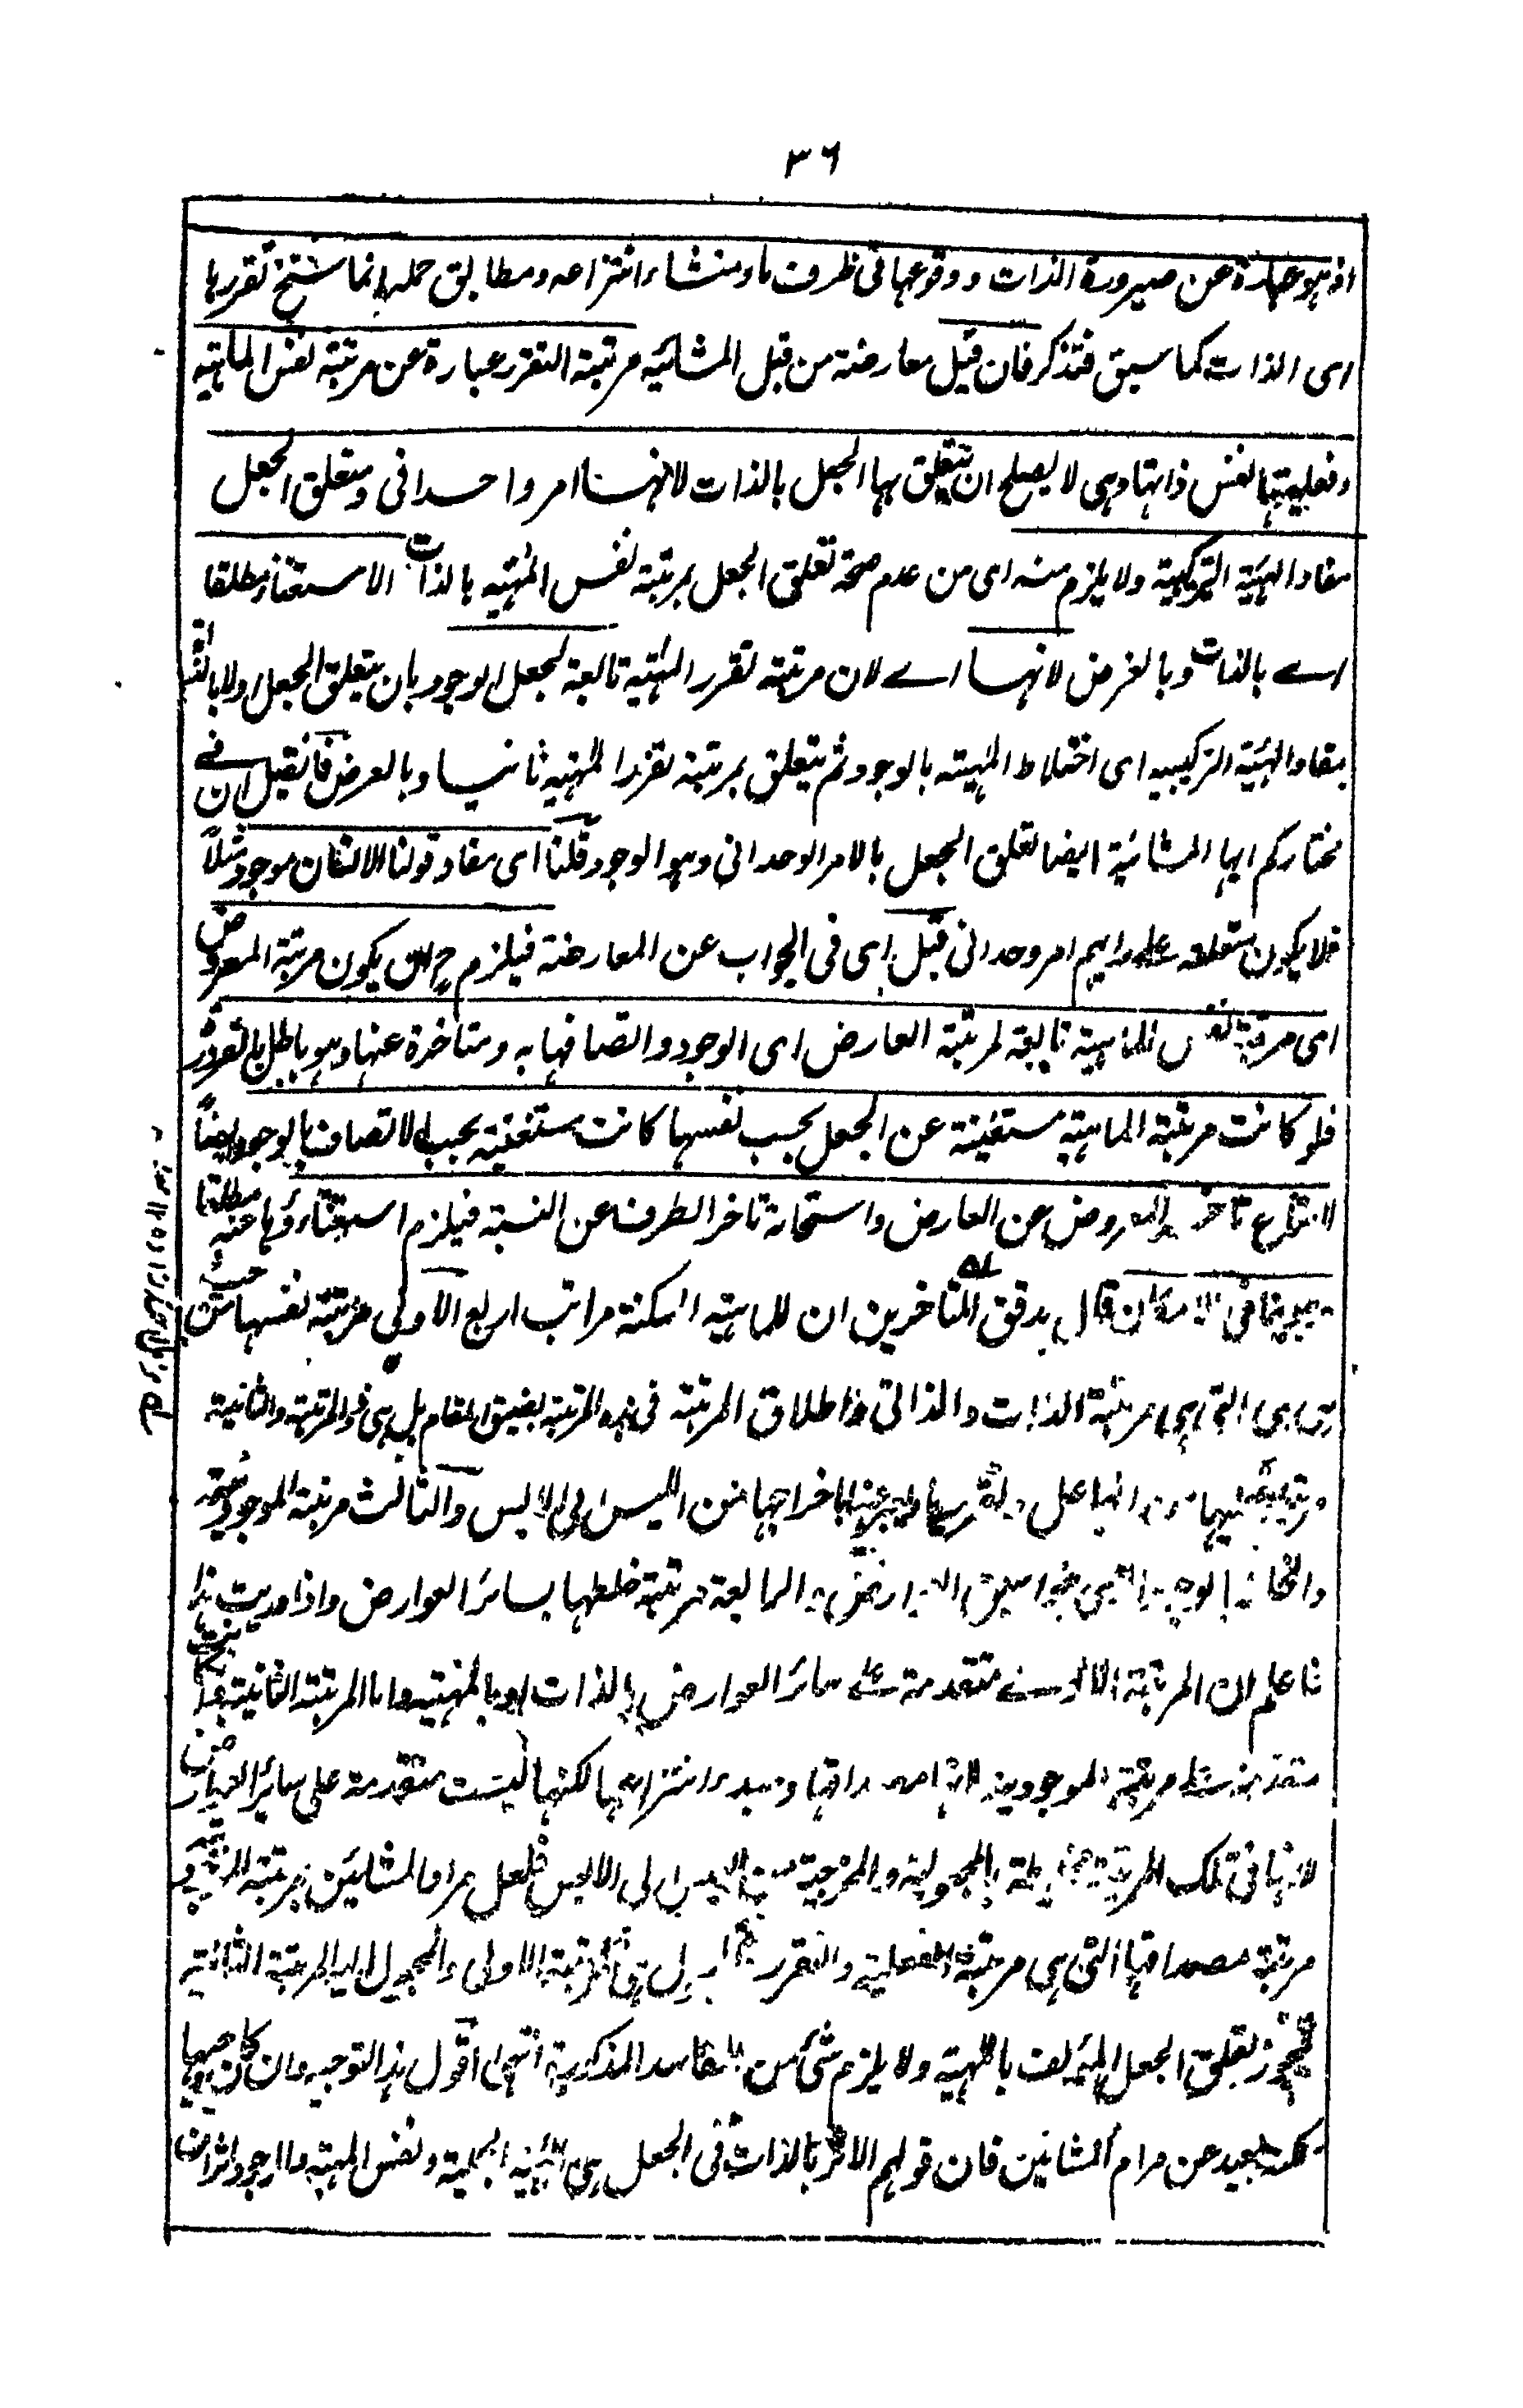 ٣٦
اذ هو عبارة عن صيرورة الذات ووقوعها فى ظرف ما ومنشاء انتزاعه ومطابق حمله انما سنخ تقررها
اى الذات كما سبق فتذكر فان قيل معارضة من قبل المشائيه مرتبة التقرر عبارة عن مرتبة نفس الماهية
وفعليتها نفس ذاتها وهى لا يصلح ان يتعلق بها الجعل بالذات لانها امر واحدانى ومتعلق الجعل
مفاد الهيئة التركيبية ولا يلزم منه اى من عدم صحة تعلق الجعل بمرتبة نفس المهية بالذات الاستغناء مطلقا
اے بالذات وبالعرض لانها اے لان مرتبة تقرر المهية تابعة لجعل الوجود بان يتعلق الجعل اولا بالذات
بمفاد الهيئة التركيبيه اى اختلاط المهية بالوجود ثم يتعلق بمرتبة تقرر المهية ثانيا وبالعرض فان قيل ان فے
مختاركم ايها المشائية ايضا تعلق الجعل بالامر الوحدانى وهو الوجود قلنا اى مفاد قولنا الانسان موجود مثلاً
فلا يكون متعلقه على رايهم امر وحدانى قيل اى فى الجواب عن المعارضة فيلزم ح ان يكون مرتبة المعروض
اى مرتبة نفس الماهية تابعة لمرتبة العارض اى الوجود واتصافها به ومتاخرة عنها وهو باطل بالضرورة
فلو كانت مرتبة الماهية مستغنية عن الجعل بحسب نفسها كانت مستغنية بحسب الاتصاف بالوجود ايضاً
لامتناع تاخر المعروض عن العارض واستحالة تاخر الطرف عن النسبة فيلزم استغناؤها عنه مطلقا
وهو ينافى الامكان قال مدقق المتاخرين ان للماهية الممكنة مراتب اربع الاولى مرتبة نفسها من حيث
هى هى التى هى مرتبة الذات والذاتى واطلاق المرتبة فى هذه المرتبة لضيق المقام بل هى فوق المرتبة والثانية
مرتبة الفاعل باخراجها من الليس الى الايس والثالث مرتبة الموجودية
الرابعة مرتبة خلطها بسائر العوارض واذا دريت هذا
فاعلم ان المرتبة الاولے متقدمة علے سائر العوارض بالذات او بالمهية واما المرتبة الثانية
متقدمة علے مرتبة الموجودية لانها مصداقها ومبدء انتزاعها لكنها ليست متقدمة على سائر العوارض
لانها فى تلك المرتبة بالمجعولية والمخرجية من الليس الى الايس فلعل مراد المشائين بمرتبة
مرتبة مصداقها التى هى مرتبة الفعلية والتقرر المرتبة الاولى والمجعول اليه المرتبة الثانية
فيجوز تعلق الجعل المؤلف بالمهية ولا يلزم شئ من المفاسد المذكورة انتهى اقول هذا التوجيه وان كان وجيها
لكنه بعيد عن مرام المشائين فان قولهم الاثر بالذات فى الجعل هى الهيئة الحملية ونفس المهية والوجود اثران